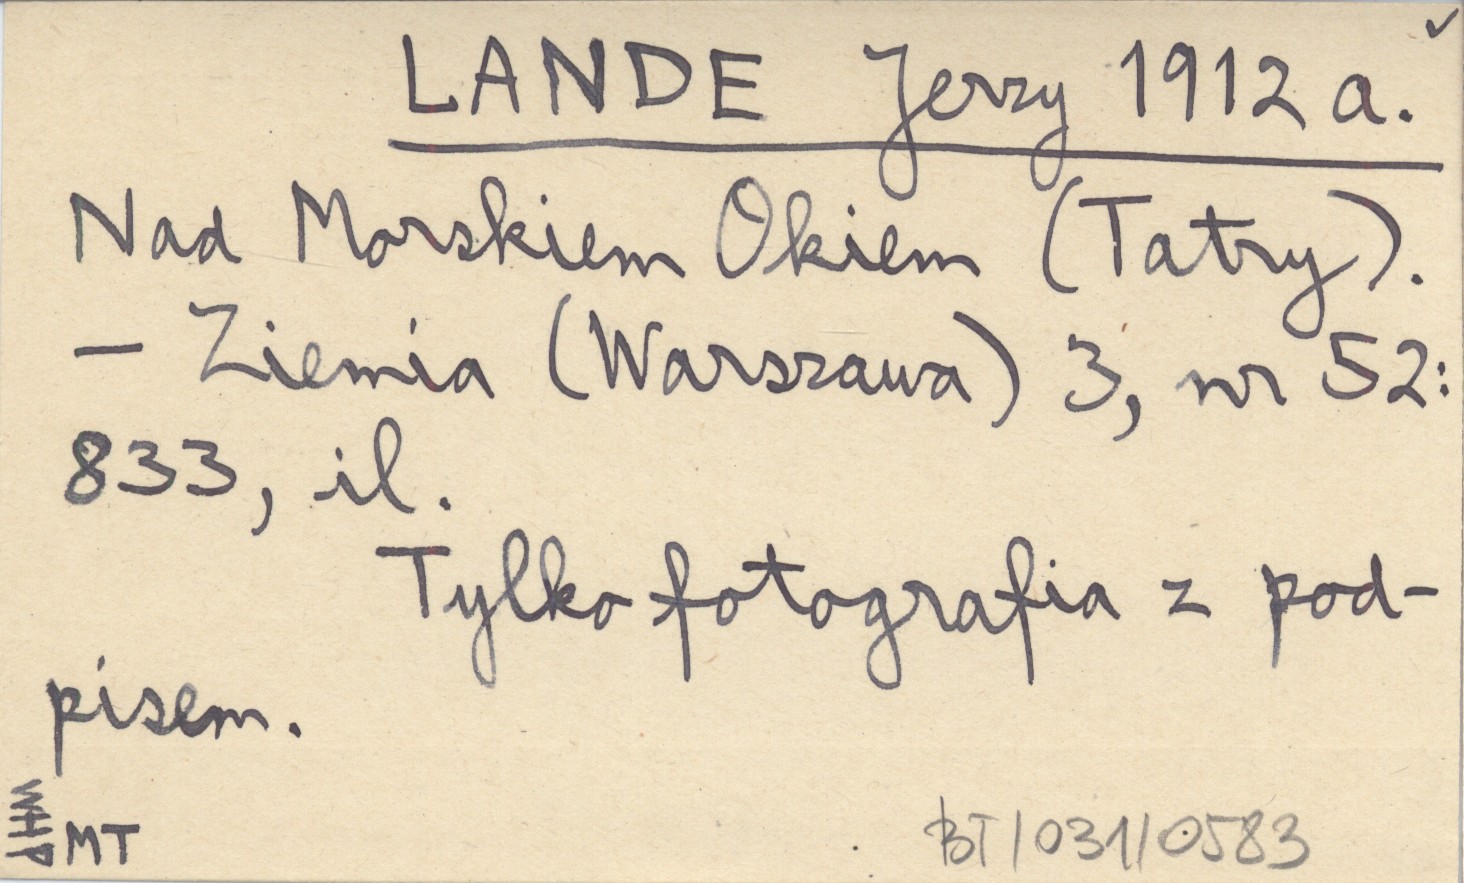 LANDE Jerzy 1912 a.
Nad Morskiem Okiem (Tatry).
– Ziemia (Warszawa) 3, nr 52:
833, il.
Tylko fotografia z pod-
pisem.
WHP
MT
BT/031/0583